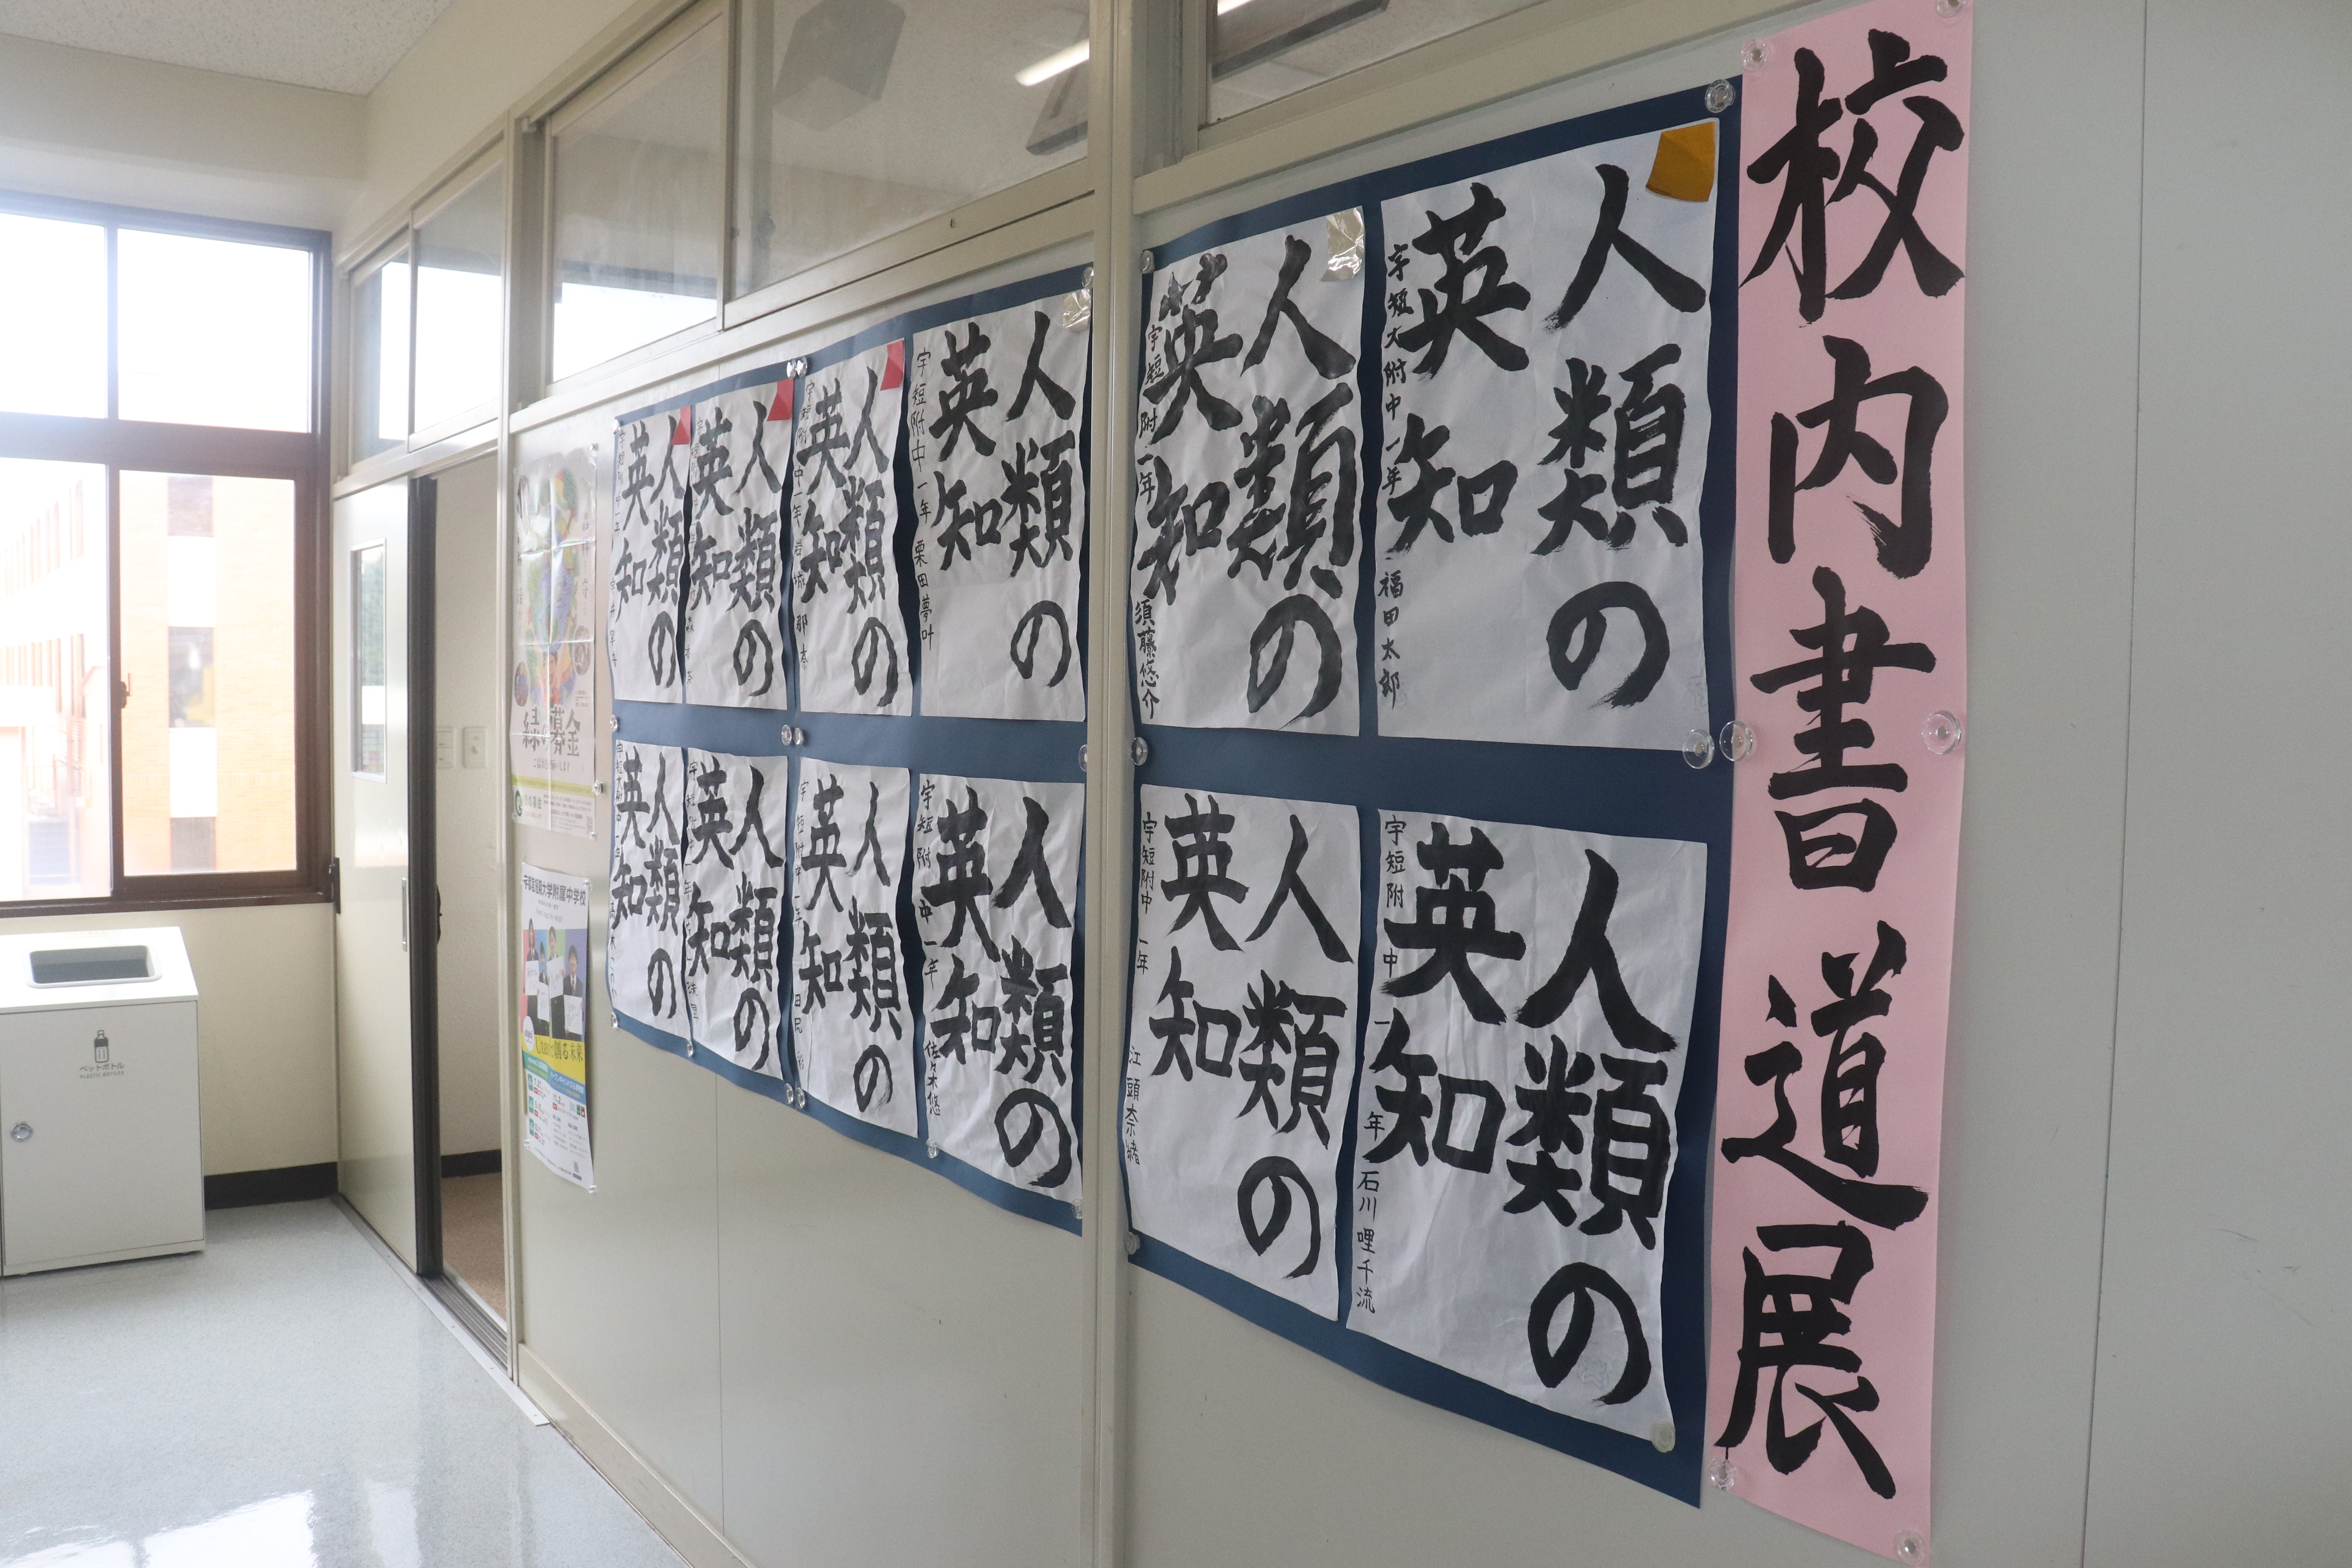 校内書道展
人類の
英知
宇短大附中一年 福田太郎
人類の
英知
宇短附一年 須藤悠介
人類の
英知
宇短附中一年 栗田夢叶
人類の
英知
人類の
英知
人類の
英知
人類の
英知
宇短附中一年 石川哩千流
人類の
英知
宇短附中一年 江頭奈緒
人類の
英知
宇短附中一年 佐々木悠
人類の
英知
人類の
英知
人類の
英知
緑の募金
宇都宮短期大学附属中学校
ペットボトル
PLASTIC BOTTLES